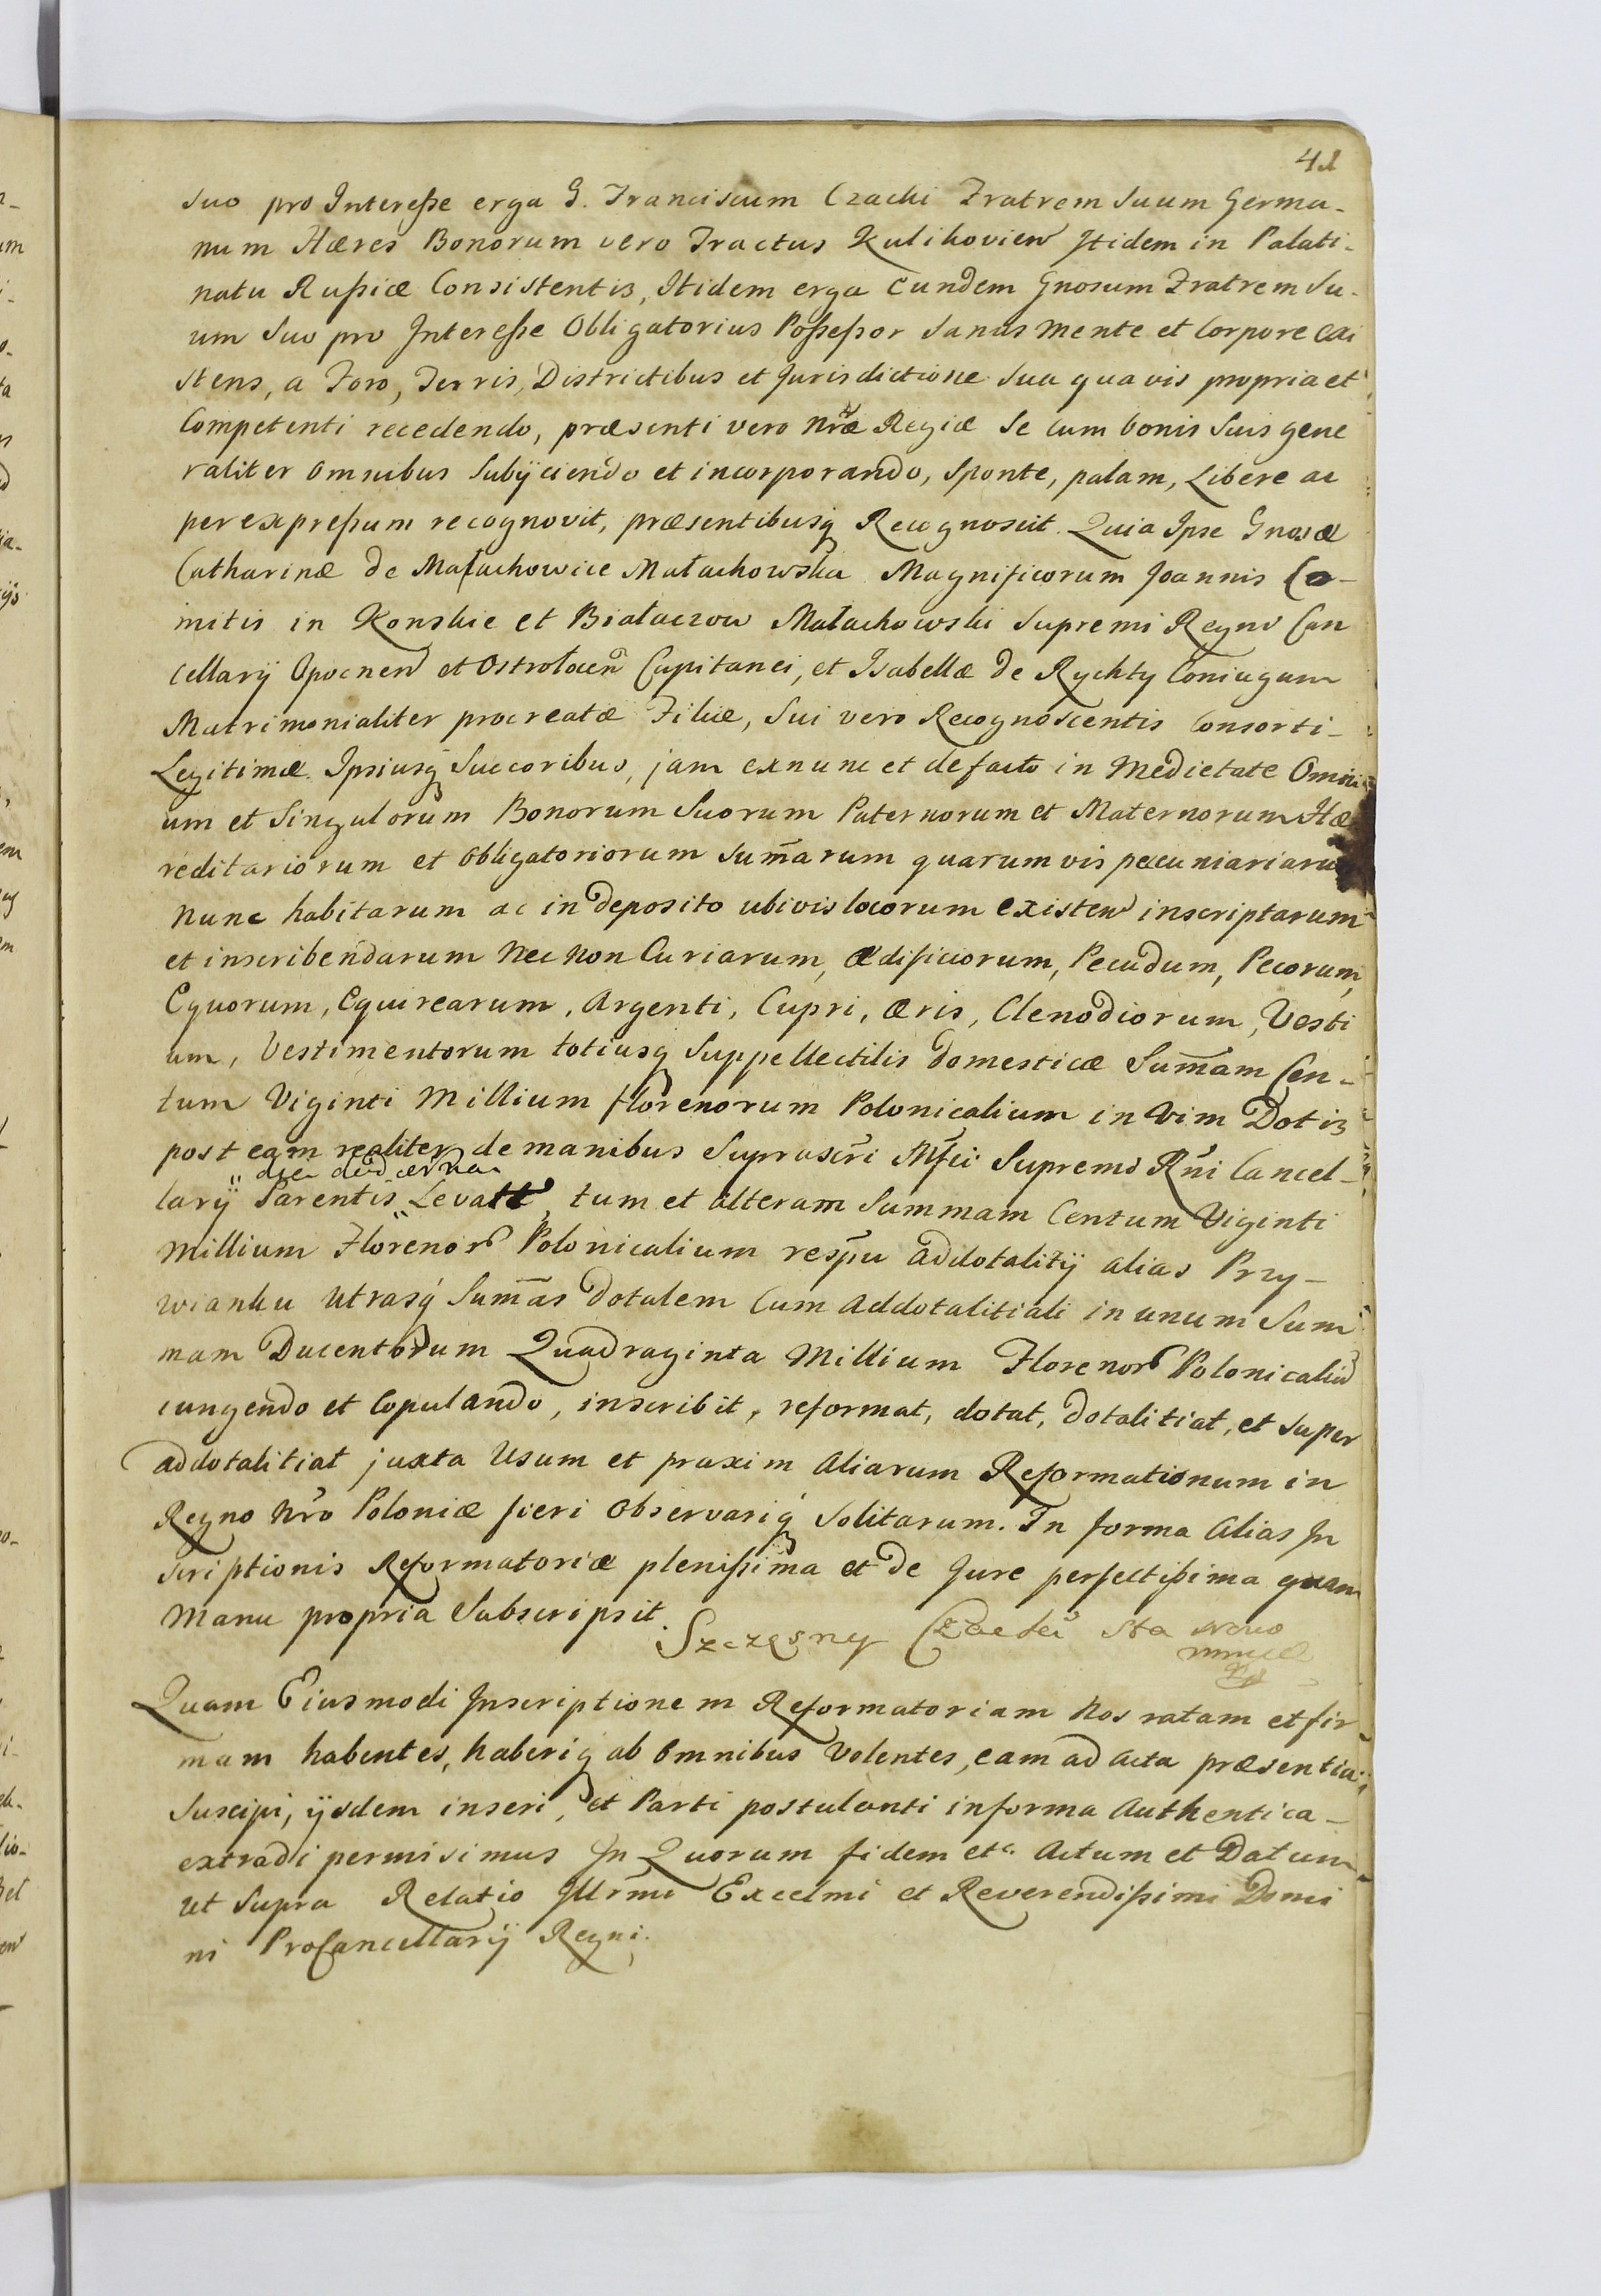 41
suo pro Interesse erga G. Franciscum Czacki Fratrem suum Germa-
num Hæres Bonorum vero Tractus Kulikovien Itidem in Palati-
natu Russiæ Consistentis, Itidem erga eundem Gnosum Fratrem Su-
um Suo pro Interesse Obligatorius Possessor Sanus mente et Corpore exi
stens, a Foro, Terris, Districtibus et Jurisdictione sua quavis propria et
Competenti recedendo, præsenti vero nræ Regiæ Se cum bonis Suis gene
raliter omnibus Subÿciendo et incorporando, Sponte, palam, Libere ac
per expressum recognovit, præsentibusq Recognoscit. Quia Ipse Gnosæ
Catharinæ de Małachowice Małachowska Magnificorum Joannis Co-
mitis in Konskie et Białaczow Małachowski Supremi Regni Can
cellarÿ Opocnen et Ostrołecen Capitanei, et Isabellæ de Rychty Coniugum
Matrimonialiter procreatæ Filiæ, Sui vero Recognoscentis Consorti-
Legitimæ Ipsiusq Succoribus, jam exnunc et defacto in Medietate Omni
um et Singulorum Bonorum Suorum Paternorum et Maternorum Hæ
reditariorum et obligatoriorum Sum̄arum quarumvis pecuniariarum
nunc habitarum ac in deposito ubivis locorum existen inscriptarum
et inscribendarum Nec non Curiarum, Ædificiorum, Pecudum, Pecorum,
Equorum, Equirearum, Argenti, Cupri, Æris, Clenodiorum, Vesti
um, Vestimentorum totiusq Suppellectilis domesticæ Sum̄am Cen-
tum Viginti Millium florenorum Polonicalium in vim Dotis
post eam realiter de manibus Suprascri Mfci Supremi Rni Cancel-
larÿ Parentis Levatt, tum et alteram Summam Centum Viginti
Millium Florenor Polonicalium respu addotalitÿ alias Przy-
wianku utrasq Sum̄as Dotalem Cum Addotalitiali in unum Sum
mam Ducentorum Quadraginta Millium Florenor Polonicaliu
iungendo et Copulando, inscribit, reformat, dotat, dotalitiat, et super
addotalitiat juxta Usum et praxim Aliarum Reformationum in
Regno nro Poloniæ fieri observariq Solitarum. In forma Alias In
scriptionis Reformatoriæ plenissima et de Jure perfectissima quam
Manu propria Subscripsit.
Szczęsny Czacki Sta Nowo
Quam Eiusmodi Inscriptionem Reformatoriam Nos ratam et fir
mam habentes, haberiq ab omnibus Volentes, eam ad Acta præsentia
Suscipi, ÿsdem inseri, et Parti postulanti in forma Authentica-
extradi permisimus In Quorum fidem etc Actum et Datum
ut Supra Relatio Illrmi Excelmi et Reverendissimi Domi
ni ProCancellarÿ Regni.